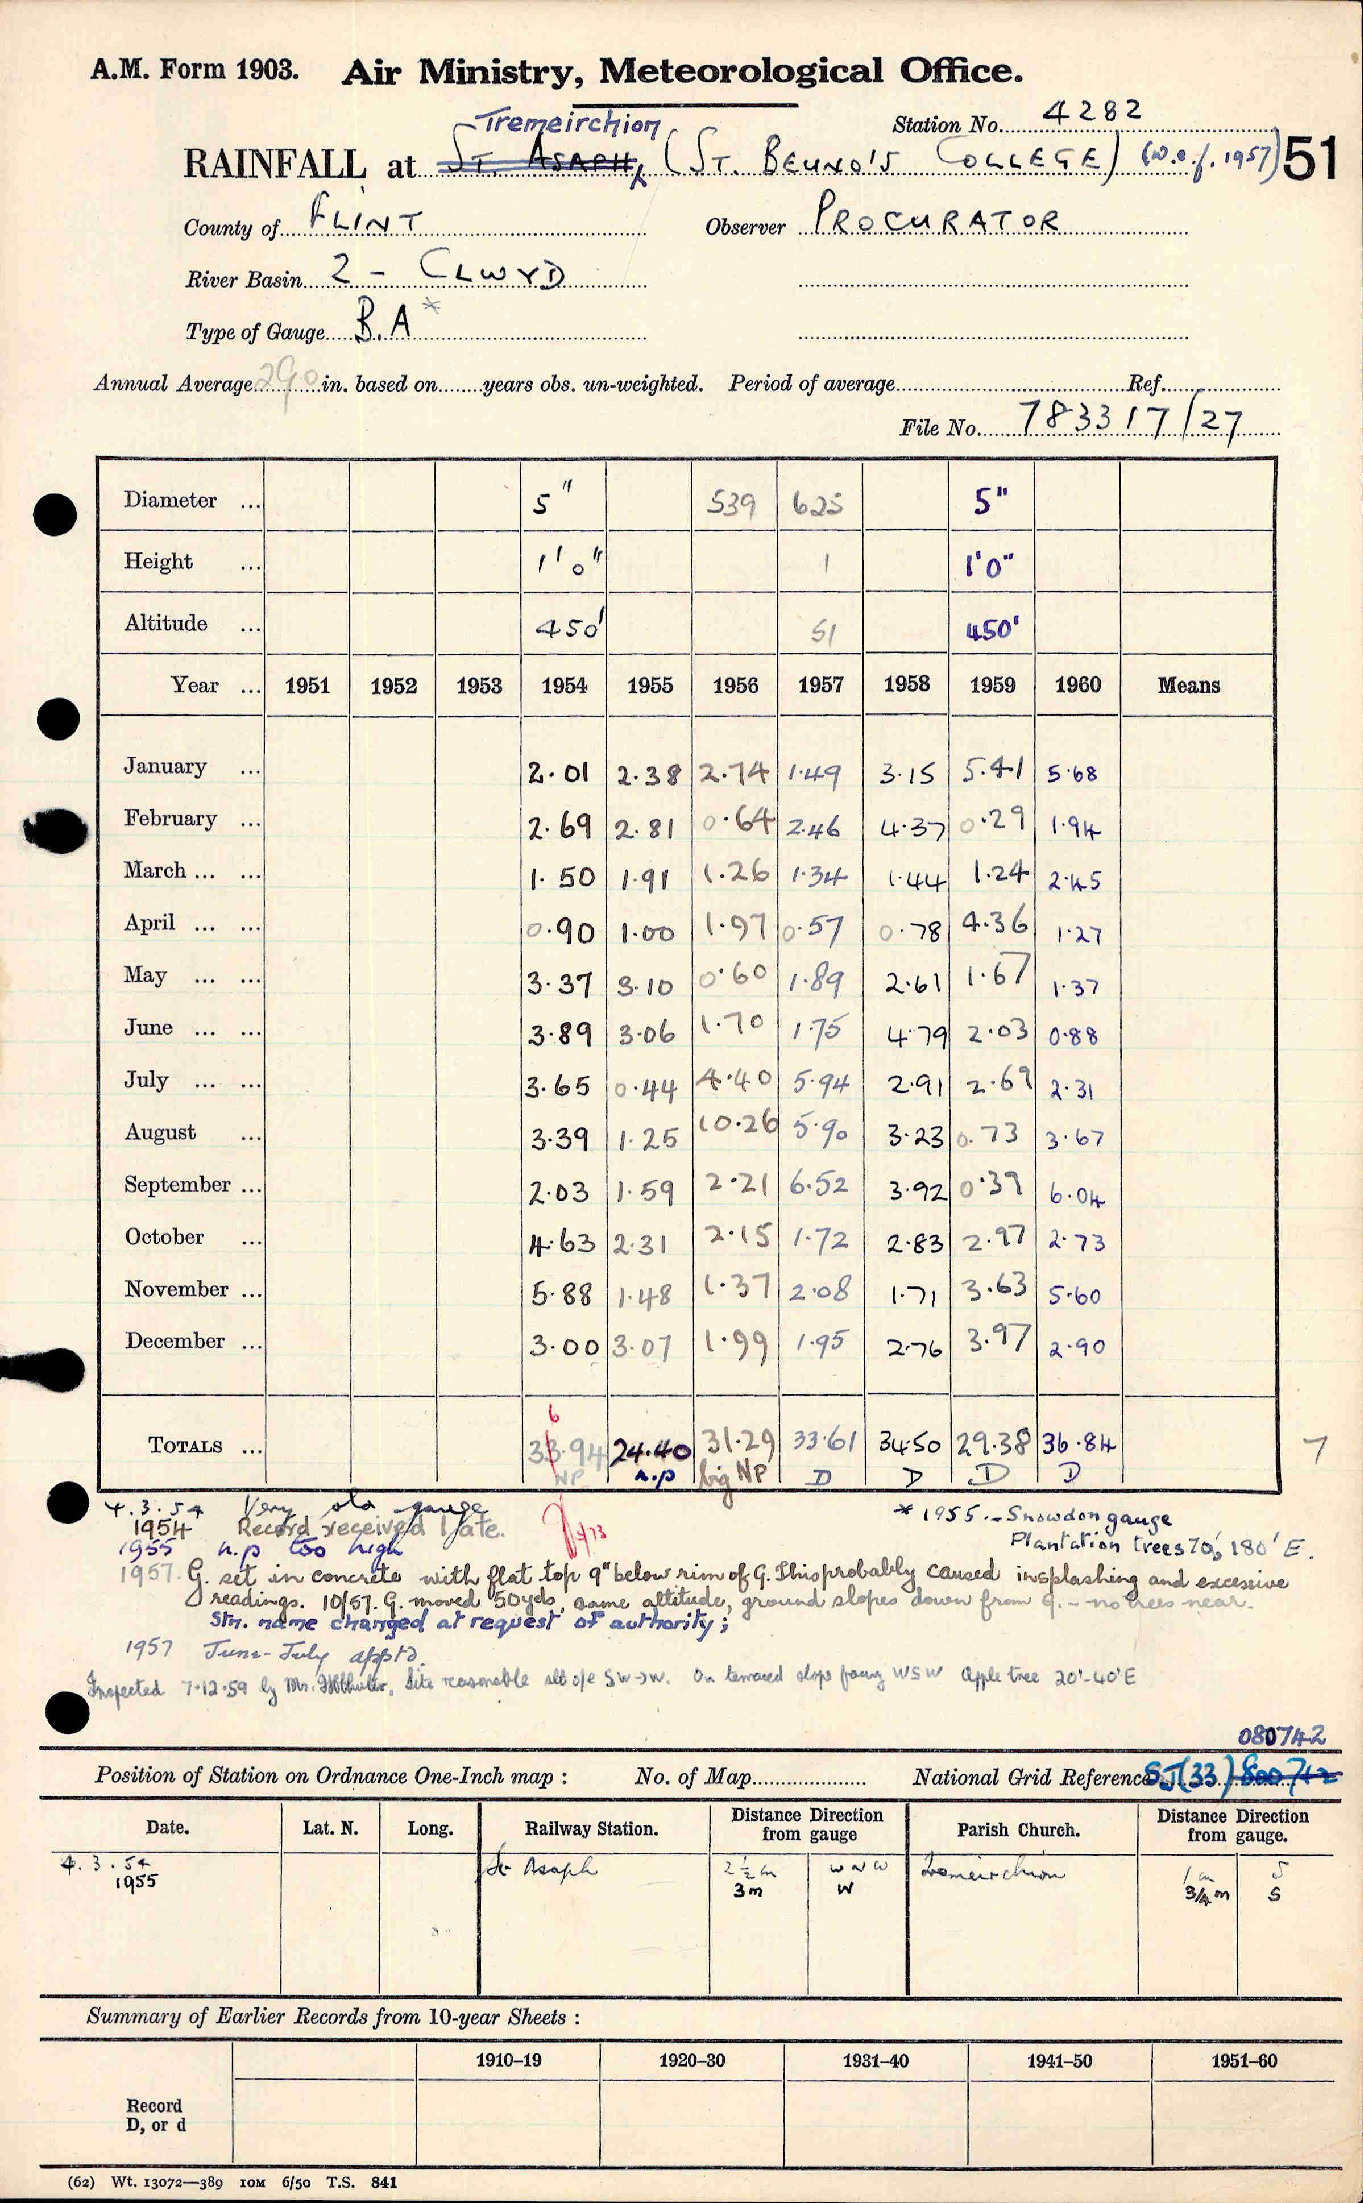 A.M. Form 1903. Air Ministry, Meteorological Office.
Tremeirchion
Station No. 4282
RAINFALL at St. Asaph (St. Beuno's College) (w.e.f. 1957) 51
County of FLINT Observer PROCURATOR
River Basin 2 - CLWYD
Type of Gauge B.A*
Annual Average 290 in. based on years obs. un-weighted. Period of average Ref.
File No. 783317/27
Diameter ... 5" 539 625 5"
Height ... 1'0" 1 1'0"
Altitude ... 450' 51 450'
Year ... 1951 1952 1953 1954 1955 1956 1957 1958 1959 1960 Means
January ... 2.01 2.38 2.74 1.49 3.15 5.41 5.68
February ... 2.69 2.81 0.64 2.46 4.37 0.29 1.94
March ... ... 1.50 1.91 1.26 1.34 1.44 1.24 2.45
April ... ... 0.90 1.00 1.97 0.57 0.78 4.36 1.27
May ... ... 3.37 3.10 0.60 1.89 2.61 1.67 1.37
June ... ... 3.89 3.06 1.70 1.75 4.79 2.03 0.88
July ... ... 3.65 0.44 4.40 5.94 2.91 2.69 2.31
August ... 3.39 1.25 10.26 5.90 3.23 0.73 3.67
September ... 2.03 1.59 2.21 6.52 3.92 0.39 6.04
October ... 4.63 2.31 2.15 1.72 2.83 2.97 2.73
November ... 5.88 1.48 1.37 2.08 1.71 3.63 5.60
December ... 3.00 3.07 1.99 1.95 2.76 3.97 2.90
6
TOTALS ... 33.94 24.40 31.29 33.61 34.50 29.38 36.84 7
NP n.p big NP D D D D
4.3.54 Very old gauge
1954 Record received late.
* 1955 - Snowdon gauge
1955 n.p too high
Plantation trees 70', 180' E.
1957. G. set in concrete with flat top 9" below rim of G. This probably caused insplashing and excessive
readings. 10/57. G. moved 50yds, same altitude, ground slopes down from G. - no trees near.
Stn. name changed at request of authority;
1957 June-July apptd.
Inspected 7.12.59 by Mr. Site reasonable alt o/e SW→W. On terraced slope facing WSW Apple tree 20'-40'E
080742
Position of Station on Ordnance One-Inch map : No. of Map National Grid Reference SJ(33) 800742
Date. Lat. N. Long. Railway Station. Distance from gauge Direction Parish Church. Distance from gauge. Direction
4.3.54 St Asaph 2½m WNW Tremeirchion 1m S
1955 3m W 3/4m S
Summary of Earlier Records from 10-year Sheets :
1910–19 1920–30 1931–40 1941–50 1951–60
Record
D, or d
(62) Wt. 13072—389 10M 6/50 T.S. 841